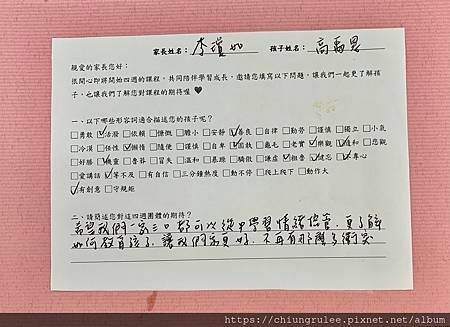 家長姓名：李瓊如 孩子姓名：高
親愛的家長您好：
很開心即將開始四週的課程，共同陪伴學習成長，邀請您填寫以下問題，讓我們一起更了解孩
子，也讓我們了解您對課程的期待喔♥
一、以下哪些形容詞適合描述您的孩子呢？
□勇敢 ☑活潑 □依賴 □慷慨 □膽小 □安靜 ☑善良 □自律 □勤勞 □謹慎 □獨立 □小氣
□冷漠 □任性 ☑懶惰 □隨便 □謹慎 □自卑 ☑固執 □龜毛 □老實 ☑樂觀 ☑隨和 □悲觀
□好勝 ☑機靈 □魯莽 □冒失 □溫和 □暴躁 □驕傲 □謙虛 ☑粗魯 ☑健忘 ☑專心
□愛講話 ☑等不及 □有自信 □三分鐘熱度 □動不停 □爬上爬下 □動作大
☑有創意 □守規矩
二、請簡述您對這四週團體的期待？
希望我們一家三口都可以從中學習情緒保養，更了解
如何教育孩子，讓我們家更好，不再有那麼多衝突
https://chiungrulee.pixnet.net/album